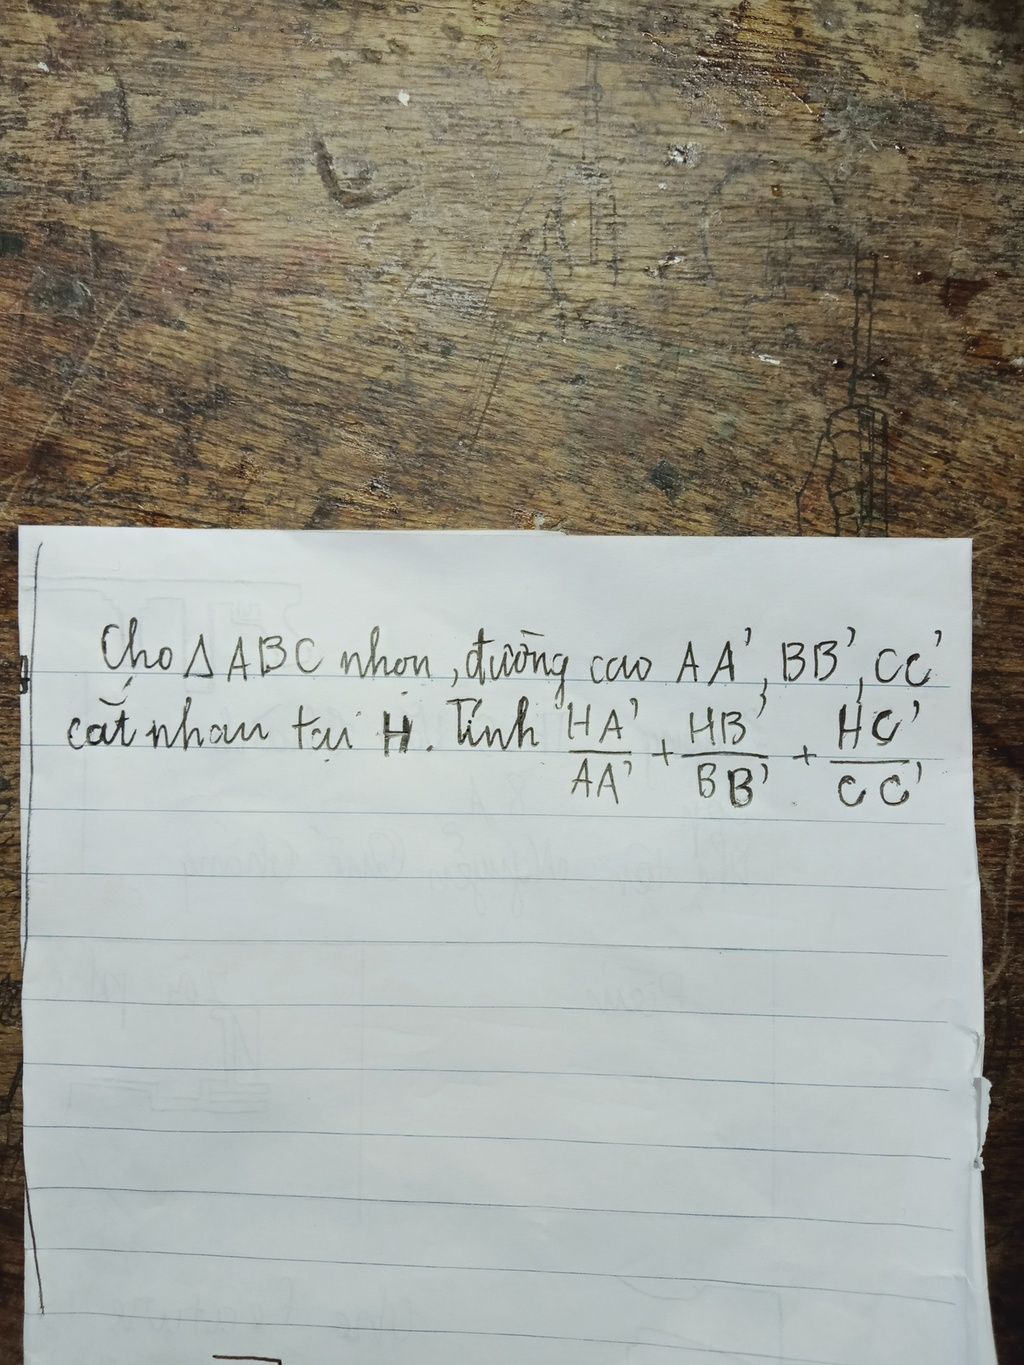 Cho Δ ABC nhọn, đường cao AA', BB', CC'
cắt nhau tại H. Tính HA'/AA' + HB'/BB' + HC'/CC'